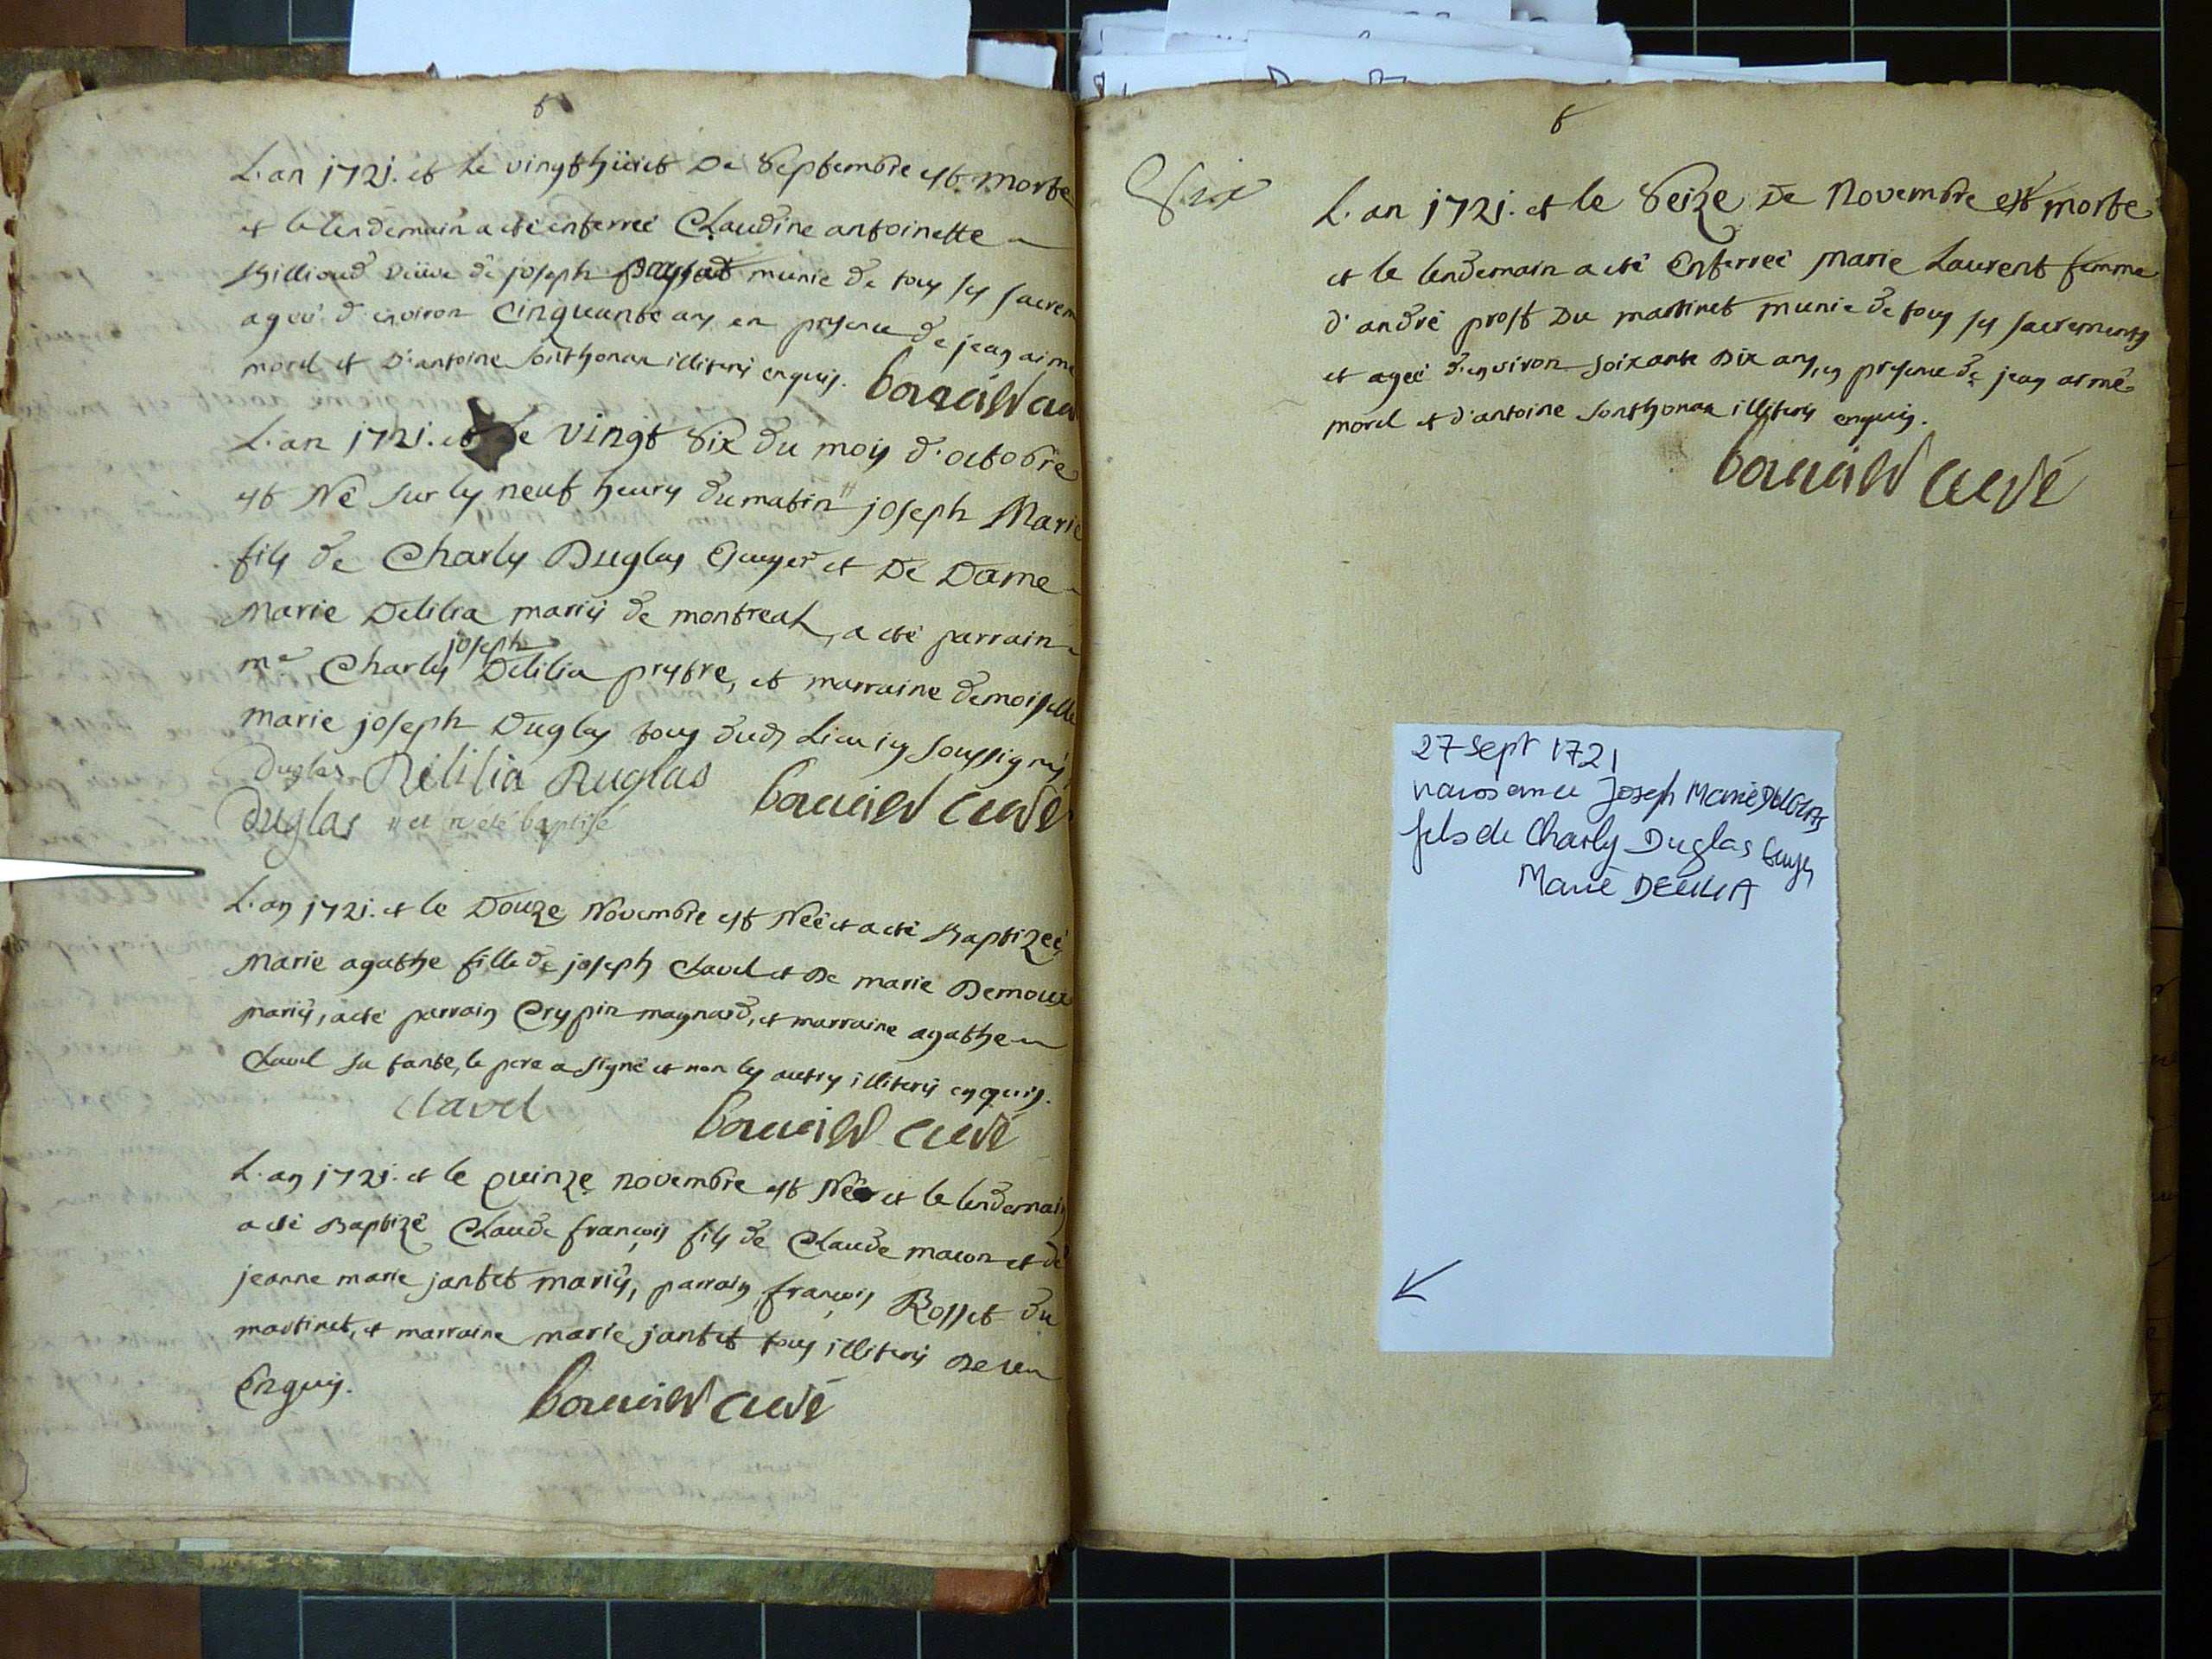 6
L'an 1721. et le vingt huict De Septembre est morte
et le lendemain a eté enterreé Claudine antoinette
Billioud veüve de joseph munie de tous ses sacrem
ageé d'environ Cinquante ans en presence de jean aimé
morel et D'antoine Sonthonax illiterés enquis.
curé
L'an 1721. et le vingt Six du mois d'octobre
est Né sur les neuf heures du matin " joseph Marie
fils de Charles Duglas Ecuyer et De Dame
Marie Delilia mariés de montreal, a eté parrain
mre Charles joseph Delilia prestre, et marraine demoiselle
marie joseph Duglas tous dud. Lieu ici soussignés
Duglas Delilia Duglas
Duglas " et a eté baptisé
curé
L'an 1721. et le Douze Novembre est Neé et a eté Baptizeé
Marie agathe fille de joseph Clavel et De marie Demoux
mariés, a eté parrain Crespin maynard, et marraine agathe
Clavel sa tante, le pere a signé et non les autres illiterés enquis.
Clavel
curé
L'an 1721. et le quinze novembre est Né et le lendemain
a eté Baptizé Claude françois fils de Claude macon et de
jeanne marie jantet mariés, parrain françois Rosset du
martinet, et marraine marie jantet tous illiterés De ce
Enquis.
curé
6
Six
L'an 1721. et le Seize De Novembre est morte
et le lendemain a eté Enterreé Marie Laurent femme
d'andré prost Du martinet munie de tous ses sacrements
et ageé d'environ soixante Dix ans, en presence de jean aimé
morel et d'antoine Sonthonax illiterés enquis.
curé
27 Sept 1721
naissance Joseph Marie DUGLAS
fils de Charles Duglas Ecuyer
Marie DELILIA